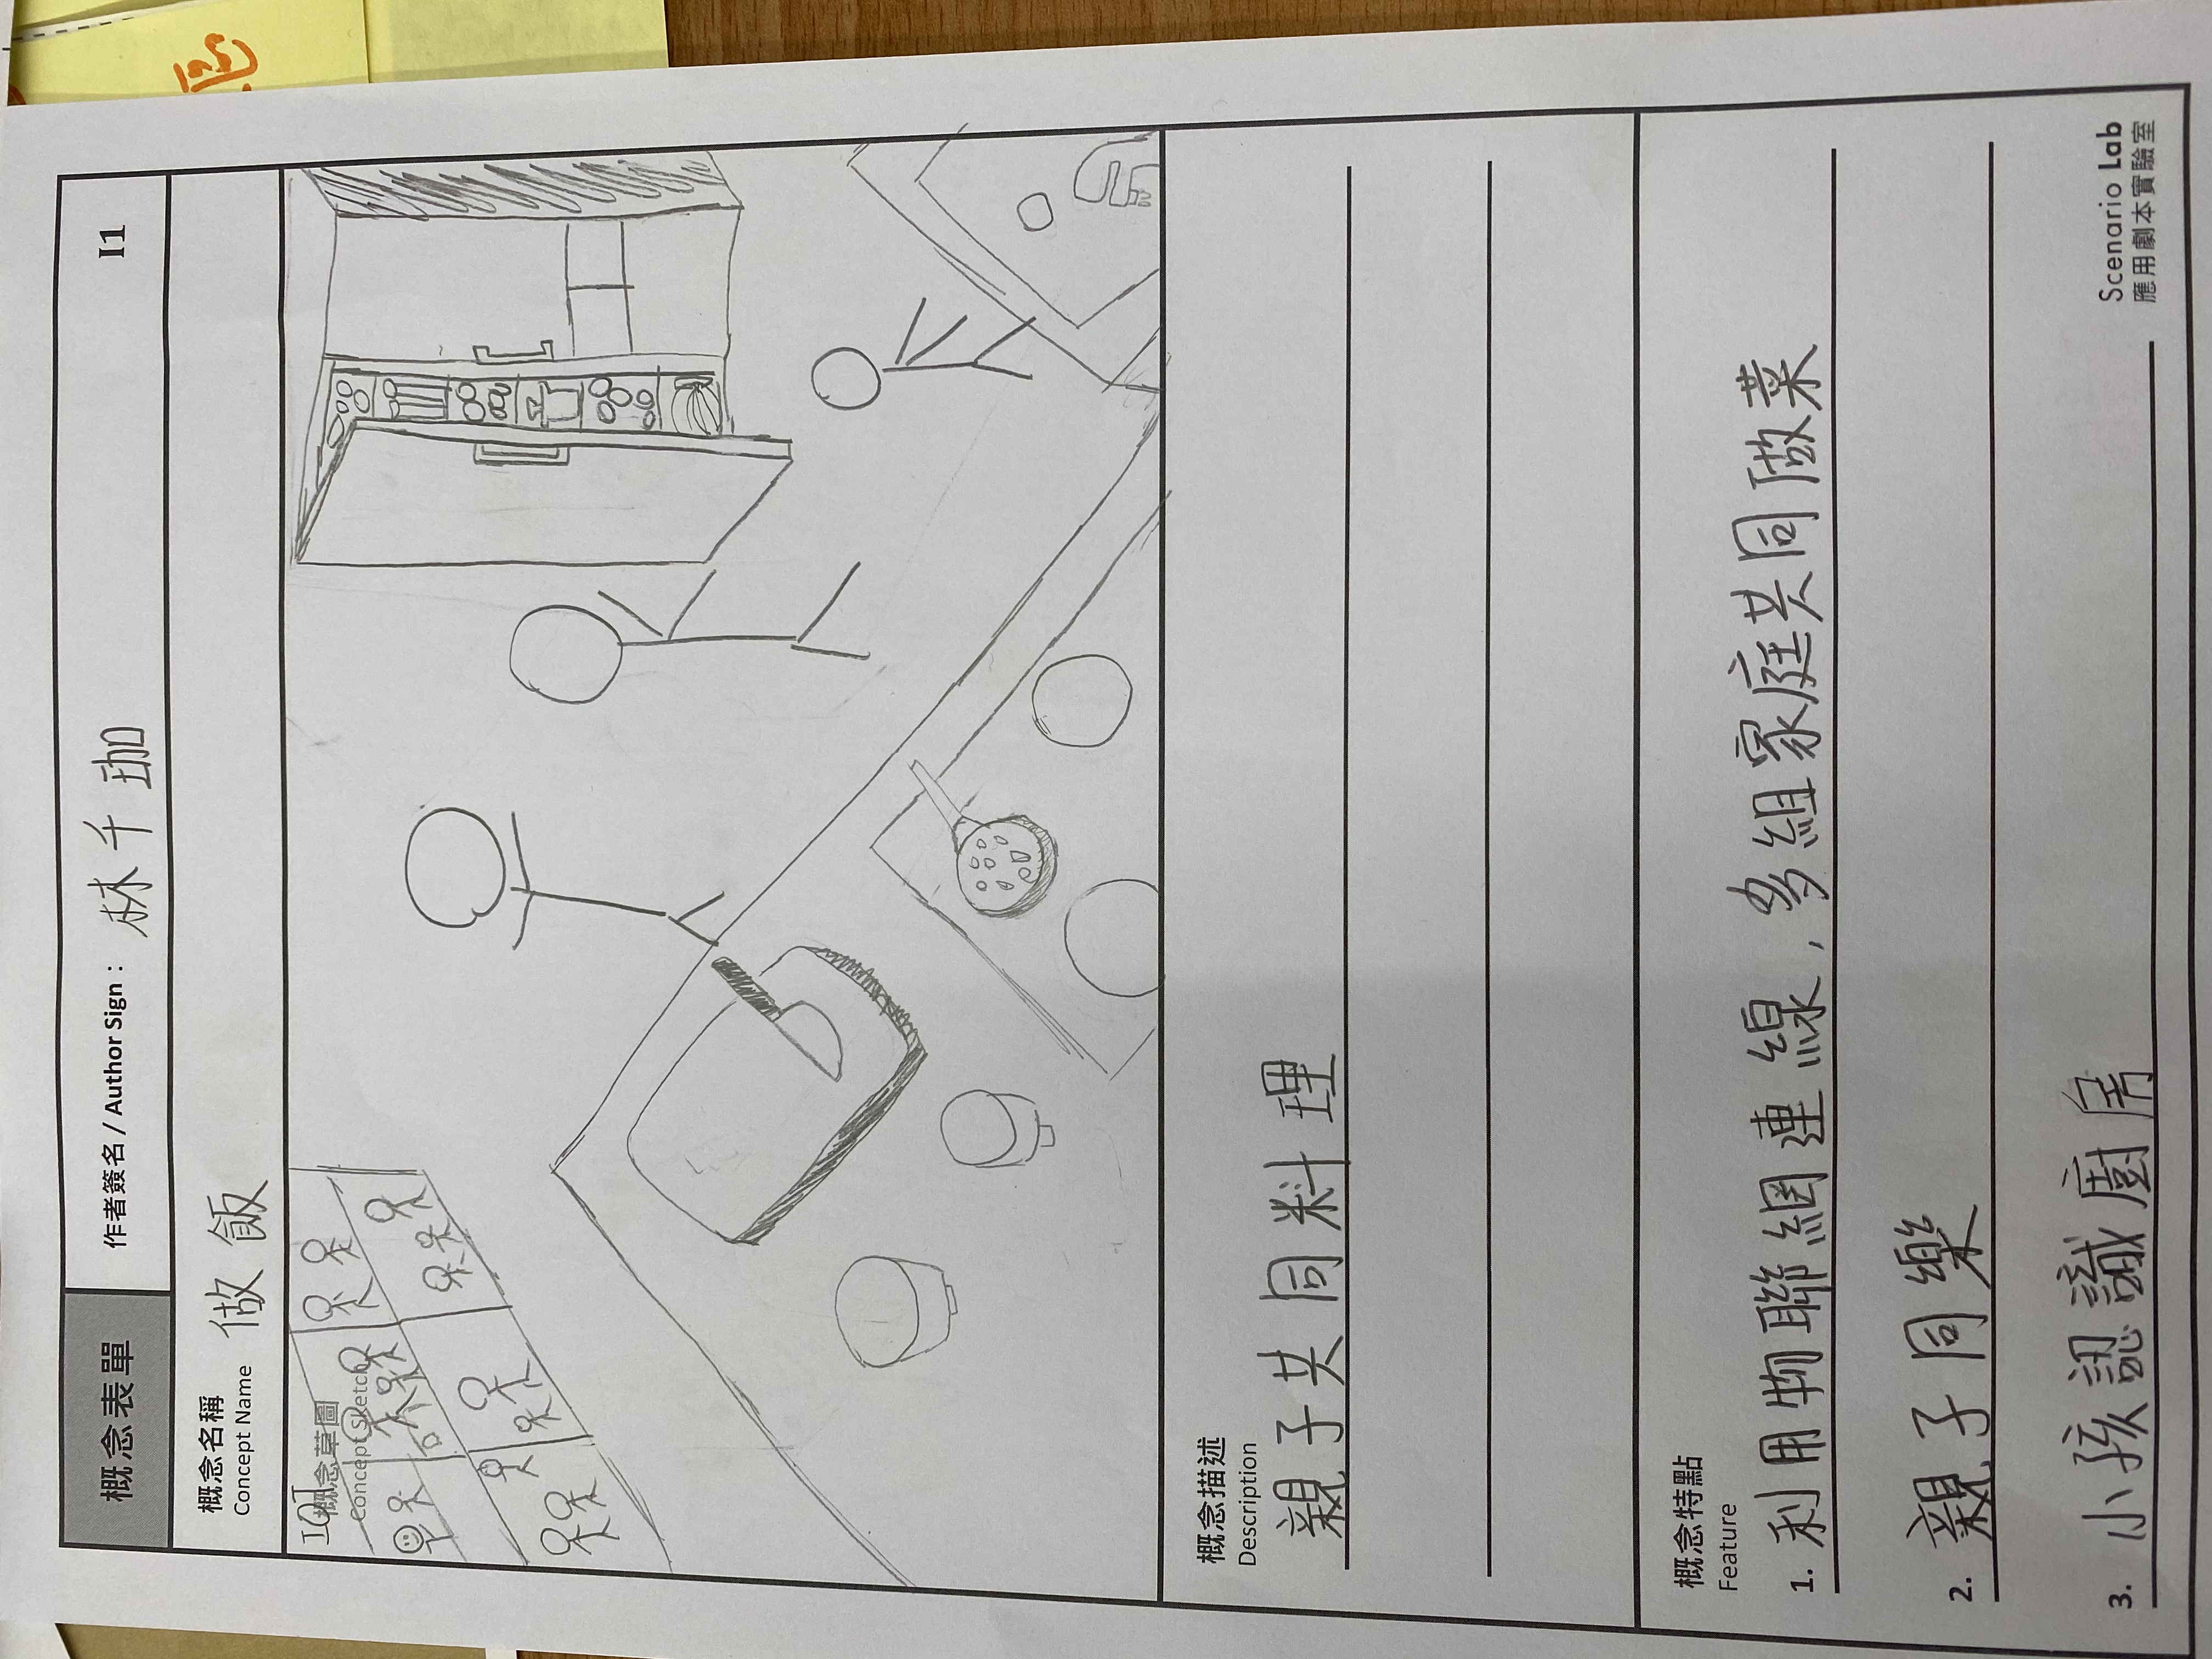 概念表單
作者簽名 / Author Sign： 林千珈
I1
概念名稱
Concept Name
做飯
IOT
概念草圖
Concept Sketch
概念描述
Description
親子共同料理
概念特點
Feature
1. 利用物聯網連線，多組家庭共同做菜
2. 親子同樂
3. 小孩認識廚房
Scenario Lab
應用劇本實驗室